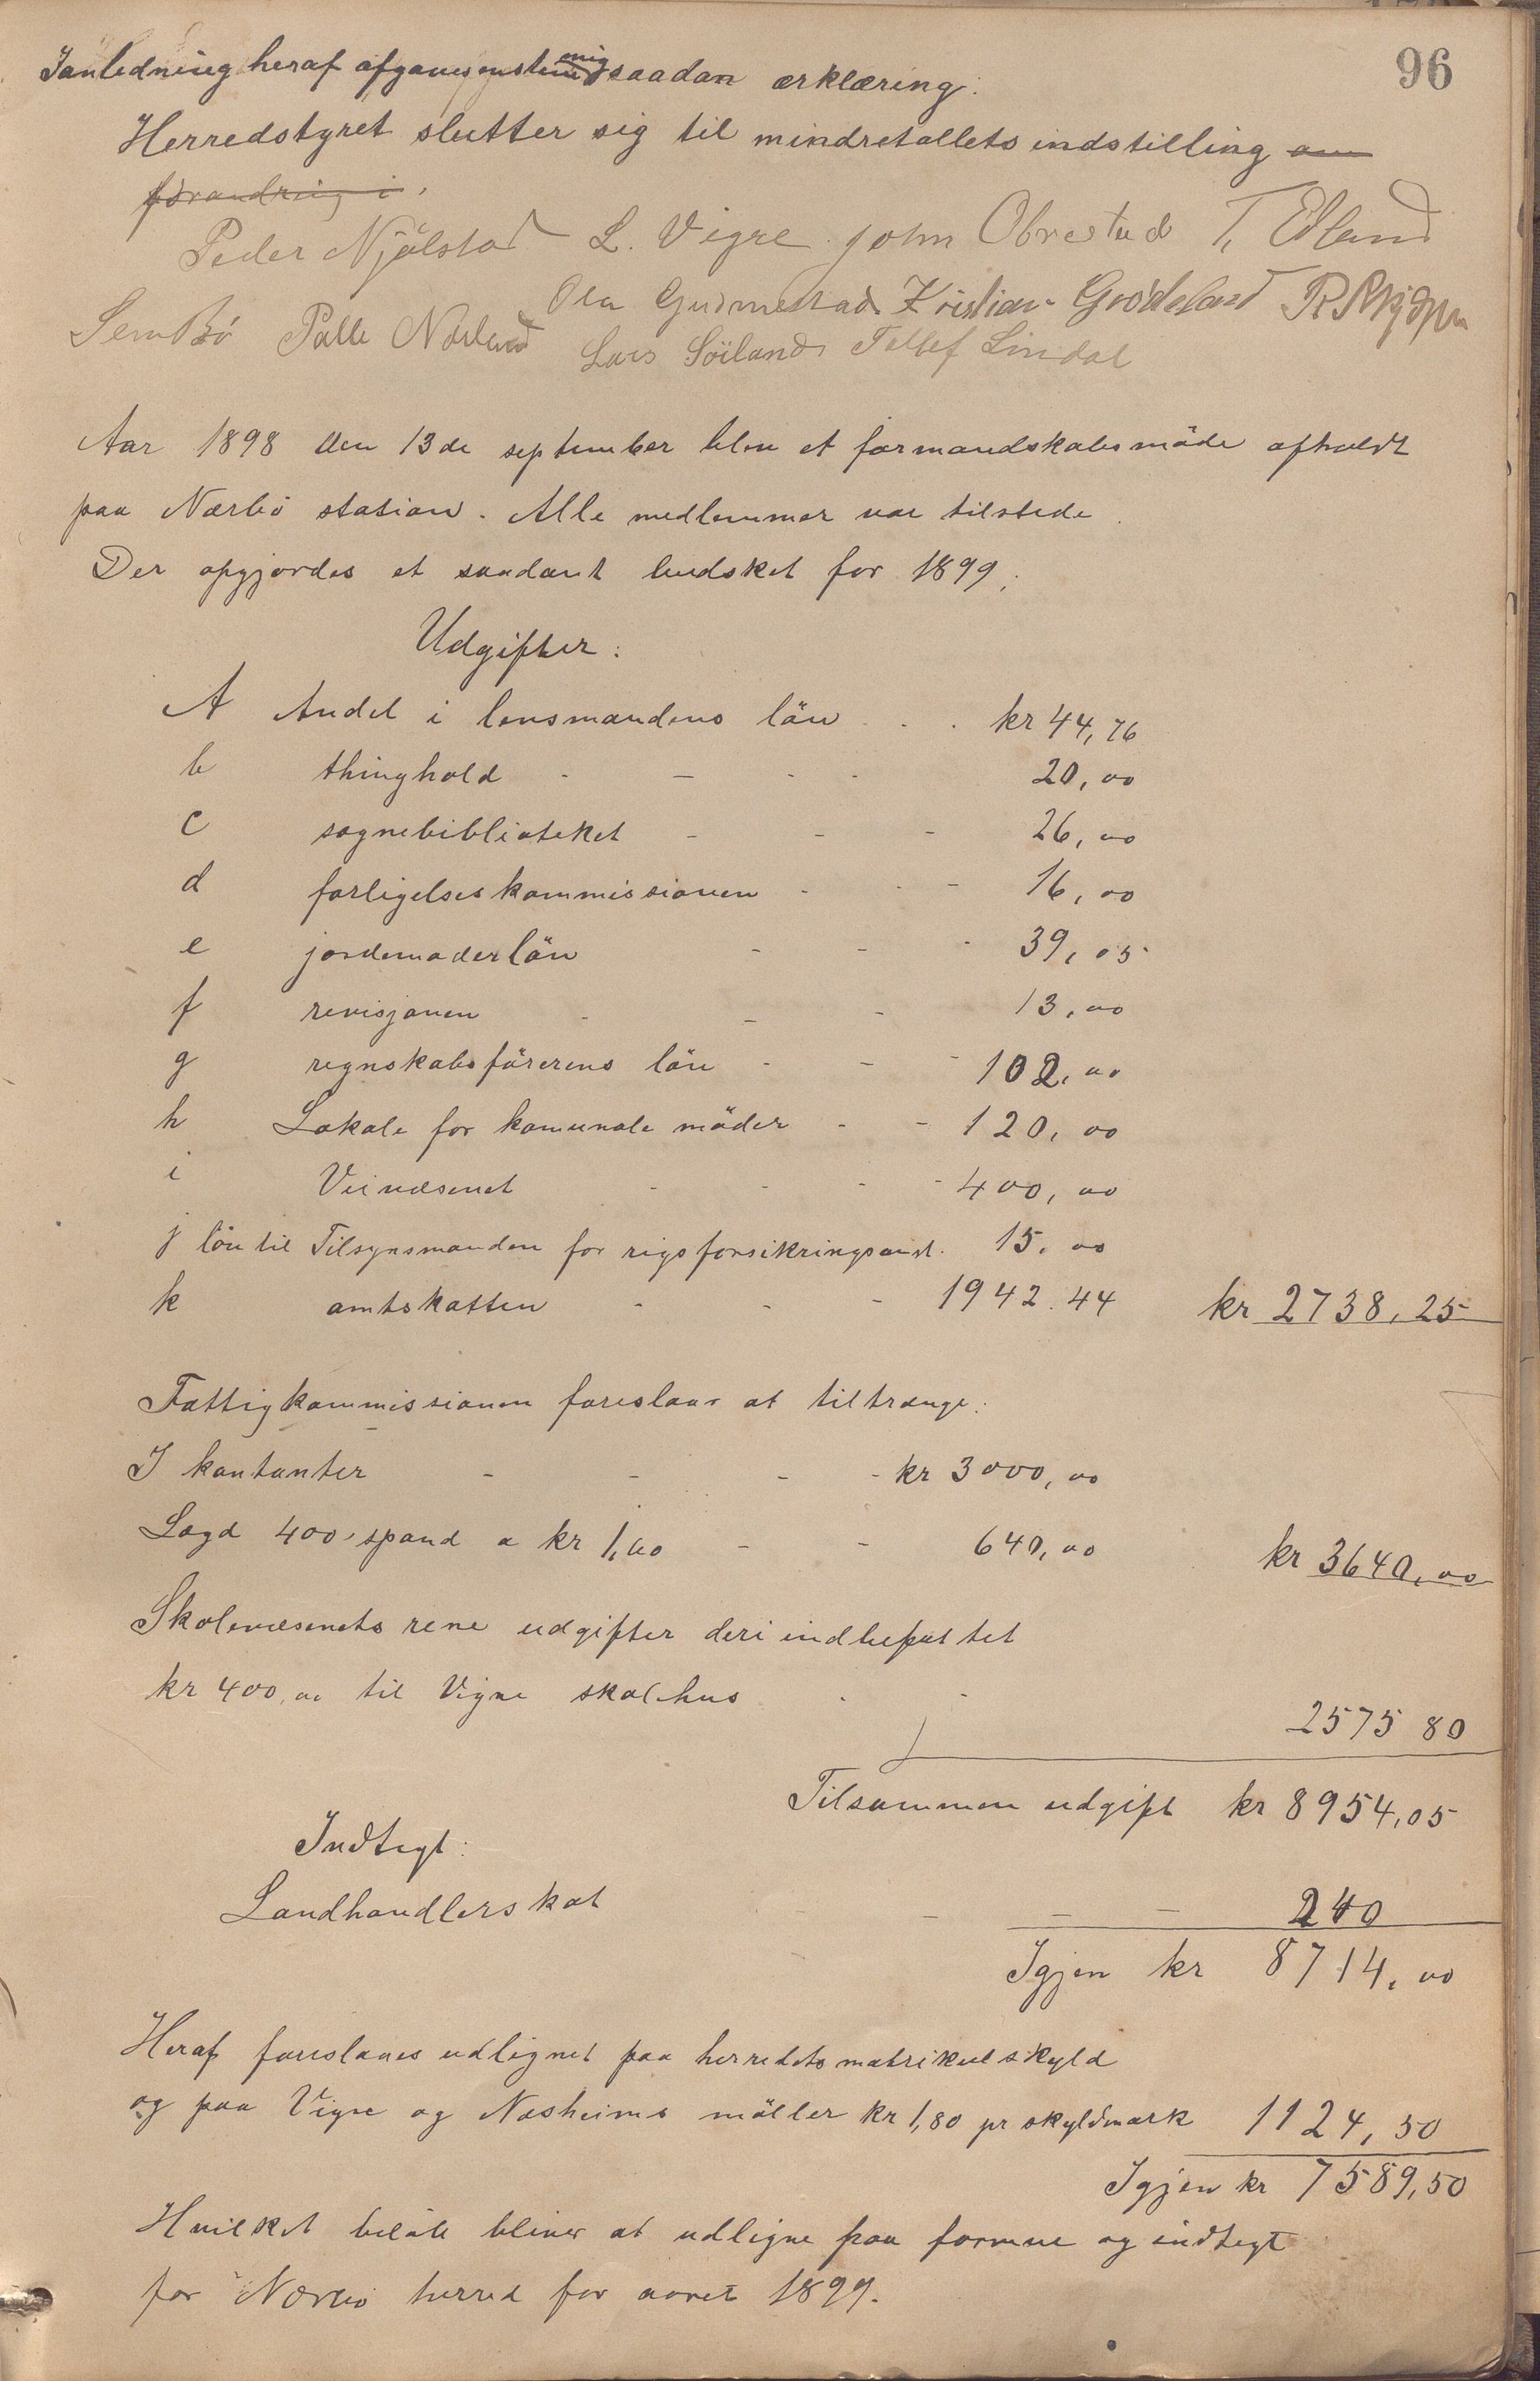 96
Ianledning heraf afgaves enstemmig saadan erklæring:
Herredstyret slutter sig til mindretallets indstilling om
forandring i.
Peder Njølstad L. Vigre. John Obrestad T. Edland
Ola Gudmestad Kristian Grødeland
Sem Bø Palle Nærland Lars Søiland Tellef Lindal
Aar 1898 den 13de september blev et formandskabsmøde afholdt
paa Nærbø station. Alle medlemmer var tilstede.
Der opgjordes et saadant budsket for 1899:
Udgifter:
A Andel i lensmandens løn . . . kr 44,76
b thinghold - - - - 20,00
c sognebiblioteket - - - 26,00
d forligelseskommissionen - - - 16,00
e jordemoderløn - - - 39,05
f revisjonen - - - 13,00
g regnskabsførerens løn - - - 102,00
h Lokale for komunale møder - - 120,00
i Veivæsenet - - - - 400,00
j løn til Tilsynsmanden for rigsforsikringsanst. 15,00
k amtskatten - - - 1942.44 kr 2738,25
Fattigkommissionen foreslaar at tiltrænge:
I kontanter - - - - kr 3000,00
Lægd 400 spand a kr 1,60 - - 640,00 kr 3640,00
Skolevæsenets rene udgifter deri indbefattet
kr 400,00 til Vigre skolehus . - 2575 80
Tilsammen udgift kr 8954,05
Indtegt:
Landhandlerskat - - - 240
Igjen kr 8714,00
Heraf foreslaaes udlignet paa herredets matrikulskyld
og paa Vigre og Næsheims møller kr 1,80 pr skyldmark 1124,50
Igjen kr 7589,50
Hvilket beløb bliver at udligne paa formue og indtegt
for Nærbø herred for aaret 1899.